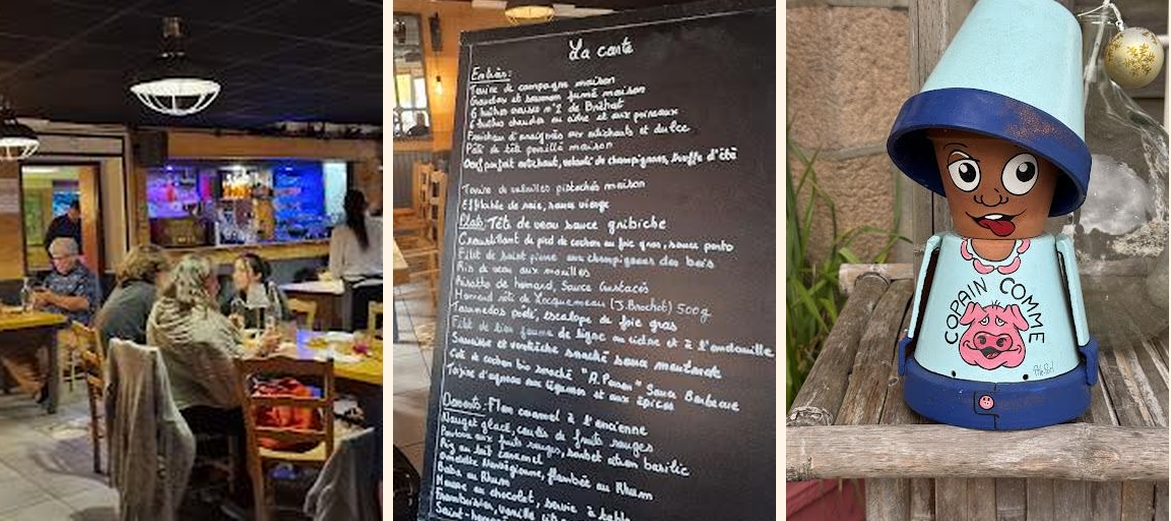 La carte
Entrées:
Terrine de campagne maison
Gravelax et saumon fumé maison
6 huîtres creuses n°2 de Bréhat
6 huîtres chaudes au cidre et aux poireaux
Fraîcheur d'araignée aux artichauts et dulce
Pâté de tête persillé maison
Oeuf parfait artichaut, velouté de champignons, truffe d'été
Terrine de volailles pistachée maison
Effilochée de raie, sauce vierge
Plats: Tête de veau sauce gribiche
Croustillant de pied de cochon au foie gras, sauce porto
Filet de saint pierre aux champignons des bois
Ris de veau aux morilles
Risotto de homard, Sauce Crustacés
Homard rôti de Locquemeau (J. Bruchot) 500g
Tournedos poêlé, escalope de foie gras
Filet de lieu jaune de ligne au cidre et à l'andouille
Saucisse et ventrèche snackée sauce moutarde
Côte de cochon bio snackée "A. Penan" Sauce Barbecue
Tajine d'agneau aux légumes et aux épices
Desserts: Flan caramel à l'ancienne
Nougat glacé, coulis de fruits rouges
Pavlova aux fruits rouges, sorbet citron basilic
Riz au lait Caramel
Omelette Norvégienne, flambée au Rhum
Baba au Rhum
Mousse au chocolat, servie à table
Framboisier, vanille
Saint-honoré
COPAIN COMME